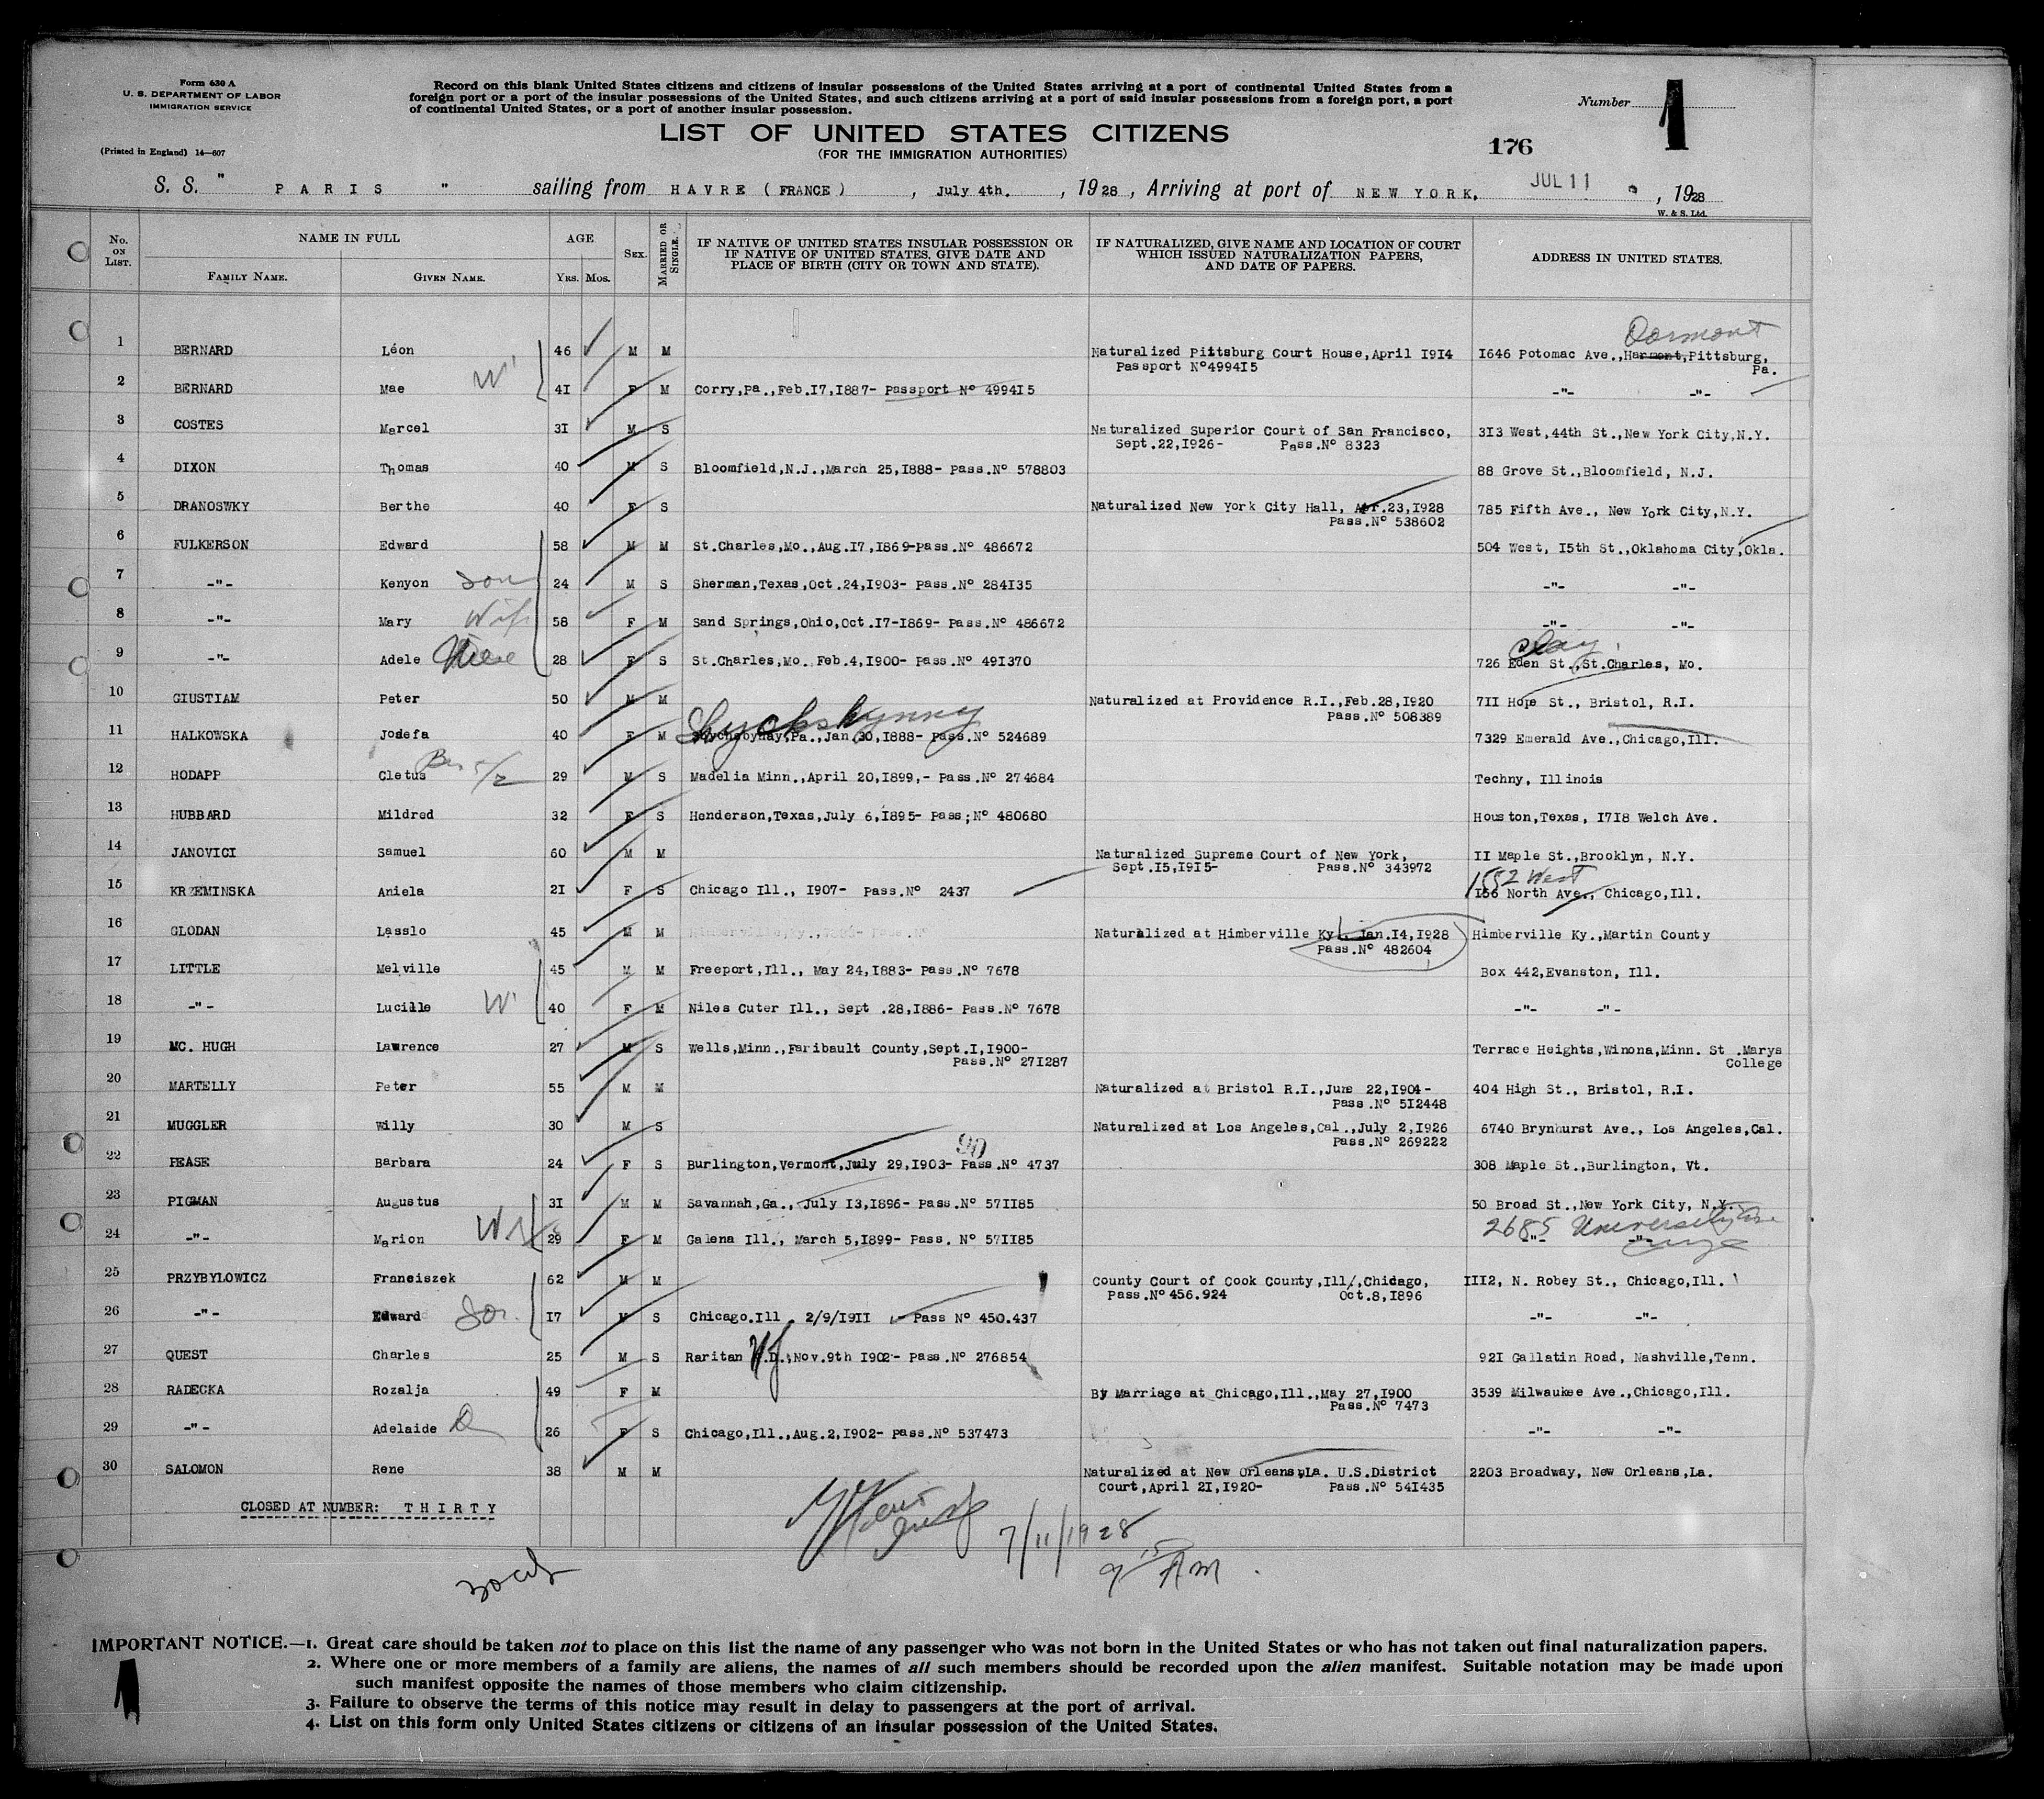 Form 630 A
U. S. DEPARTMENT OF LABOR
IMMIGRATION SERVICE
(Printed in England) 14—607
Record on this blank United States citizens and citizens of insular possessions of the United States arriving at a port of continental United States from a
foreign port or a port of the insular possessions of the United States, and such citizens arriving at a port of said insular possessions from a foreign port, a port
of continental United States, or a port of another insular possession.
Number 1
LIST OF UNITED STATES CITIZENS
(FOR THE IMMIGRATION AUTHORITIES)
176
S. S. " PARIS " sailing from HAVRE (FRANCE), July 4th., 1928, Arriving at port of NEW YORK, JUL 11, 1928
W. & S. Ltd.
No. ON LIST. NAME IN FULL AGE SEX. MARRIED OR SINGLE. IF NATIVE OF UNITED STATES INSULAR POSSESSION OR IF NATIVE OF UNITED STATES, GIVE DATE AND PLACE OF BIRTH (CITY OR TOWN AND STATE). IF NATURALIZED, GIVE NAME AND LOCATION OF COURT WHICH ISSUED NATURALIZATION PAPERS, AND DATE OF PAPERS. ADDRESS IN UNITED STATES.
FAMILY NAME. GIVEN NAME. YRS. MOS.
Dormont
1 BERNARD Léon 46 M M Naturalized Pittsburg Court House, April 1914 1646 Potomac Ave., Harmont, Pittsburg,
Passport Nº499415 Pa.
2 BERNARD Mae W 41 F M Corry, Pa., Feb.17,1887- Passport Nº 499415 -"- -"-
3 COSTES Marcel 31 M S Naturalized Superior Court of San Francisco, 313 West, 44th St., New York City, N.Y.
Sept.22,1926- Pass.Nº 8323
4 DIXON Thomas 40 M S Bloomfield, N.J., March 25,1888- Pass.Nº 578803 88 Grove St., Bloomfield, N.J.
5 DRANOSWKY Berthe 40 F S Naturalized New York City Hall, Apr.23,1928 785 Fifth Ave., New York City, N.Y.
Pass.Nº 538602
6 FULKERSON Edward 58 M M St.Charles, Mo., Aug.17,1869-Pass.Nº 486672 504 West, 15th St., Oklahoma City, Okla.
7 -"- Kenyon Son 24 M S Sherman, Texas, Oct.24,1903- Pass.Nº 284135 -"- -"-
8 -"- Mary Wife 58 F M Sand Springs, Ohio, Oct.17-1869- Pass.Nº 486672 -"- -"-
Clay
9 -"- Adele Niece 28 F S St.Charles, Mo. Feb.4,1900- Pass.Nº 491370 726 Eden St., St.Charles, Mo.
10 GIUSTIAM Peter 50 M M Naturalized at Providence R.I., Feb.28,1920 711 Hope St., Bristol, R.I.
Pass.Nº 508389
11 HALKOWSKA Josefa 40 F M Pa., Jan 30,1888- Pass.Nº 524689 7329 Emerald Ave., Chicago, Ill.
12 HODAPP Cletus 29 M S Madelia Minn., April 20,1899,- Pass.Nº 274684 Techny, Illinois
13 HUBBARD Mildred 32 F S Henderson, Texas, July 6,1895- Pass;Nº 480680 Houston, Texas, 1718 Welch Ave.
14 JANOVICI Samuel 60 M M Naturalized Supreme Court of New York, 11 Maple St., Brooklyn, N.Y.
Sept.15,1915- Pass.Nº 343972
1552 West
15 KRZEMINSKA Aniela 21 F S Chicago Ill., 1907- Pass.Nº 2437 156 North Ave., Chicago, Ill.
16 GLODAN Lasslo 45 M M Naturalized at Himberville Ky., Jan.14,1928 Himberville Ky., Martin County
Pass.Nº 482604
17 LITTLE Melville 45 M M Freeport, Ill., May 24,1883- Pass.Nº 7678 Box 442, Evanston, Ill.
18 -"- Lucille W 40 F M Niles Cuter Ill., Sept .28,1886- Pass.Nº 7678 -"- -"-
19 MC. HUGH Lawrence 27 M S Wells, Minn., Faribault County, Sept.1,1900- Terrace Heights, Winona, Minn. St .Marys
Pass.Nº 271287 College
20 MARTELLY Peter 55 M M Naturalized at Bristol R.I., June 22,1904- 404 High St., Bristol, R.I.
Pass.Nº 512448
21 MUGGLER Willy 30 M S Naturalized at Los Angeles, Cal., July 2,1926 6740 Brynhurst Ave., Los Angeles, Cal.
Pass.Nº 269222
90
22 PEASE Barbara 24 F S Burlington, Vermont, July 29,1903- Pass.Nº 4737 308 Maple St., Burlington, Vt.
23 PIGMAN Augustus 31 M M Savannah, Ga., July 13,1896- Pass.Nº 571185 50 Broad St., New York City, N.Y.
2685 University Ave
24 -"- Marion W 29 F M Galena Ill., March 5,1899- Pass. Nº 571185 -"- -"-
25 PRZYBYLOWICZ Franciszek 62 M M County Court of Cook County, Ill/, Chicago, 1112, N. Robey St., Chicago, Ill.
Pass.Nº 456.924 Oct.8,1896
26 -"- Edward Son 17 M S Chicago.Ill . 2/9/1911 Pass Nº 450.437 -"- -"-
27 QUEST Charles 25 M S Raritan NJ Nov.9th 1902- Pass.Nº 276854 921 Gallatin Road, Nashville, Tenn.
28 RADECKA Rozalja 49 F M By Marriage at Chicago, Ill., May 27,1900 3539 Milwaukee Ave., Chicago, Ill.
Pass.Nº 7473
29 -"- Adelaide D 26 F S Chicago, Ill., Aug.2,1902- Pass.Nº 537473 -"- -"-
30 SALOMON Rene 38 M M Naturalized at New Orleans, La. U.S.District 2203 Broadway, New Orleans, La.
Court, April 21,1920- Pass.Nº 541435
CLOSED AT NUMBER: THIRTY
7/11/1928
9 15 AM
IMPORTANT NOTICE.—1. Great care should be taken not to place on this list the name of any passenger who was not born in the United States or who has not taken out final naturalization papers.
2. Where one or more members of a family are aliens, the names of all such members should be recorded upon the alien manifest. Suitable notation may be made upon
such manifest opposite the names of those members who claim citizenship.
3. Failure to observe the terms of this notice may result in delay to passengers at the port of arrival.
4. List on this form only United States citizens or citizens of an insular possession of the United States.
1